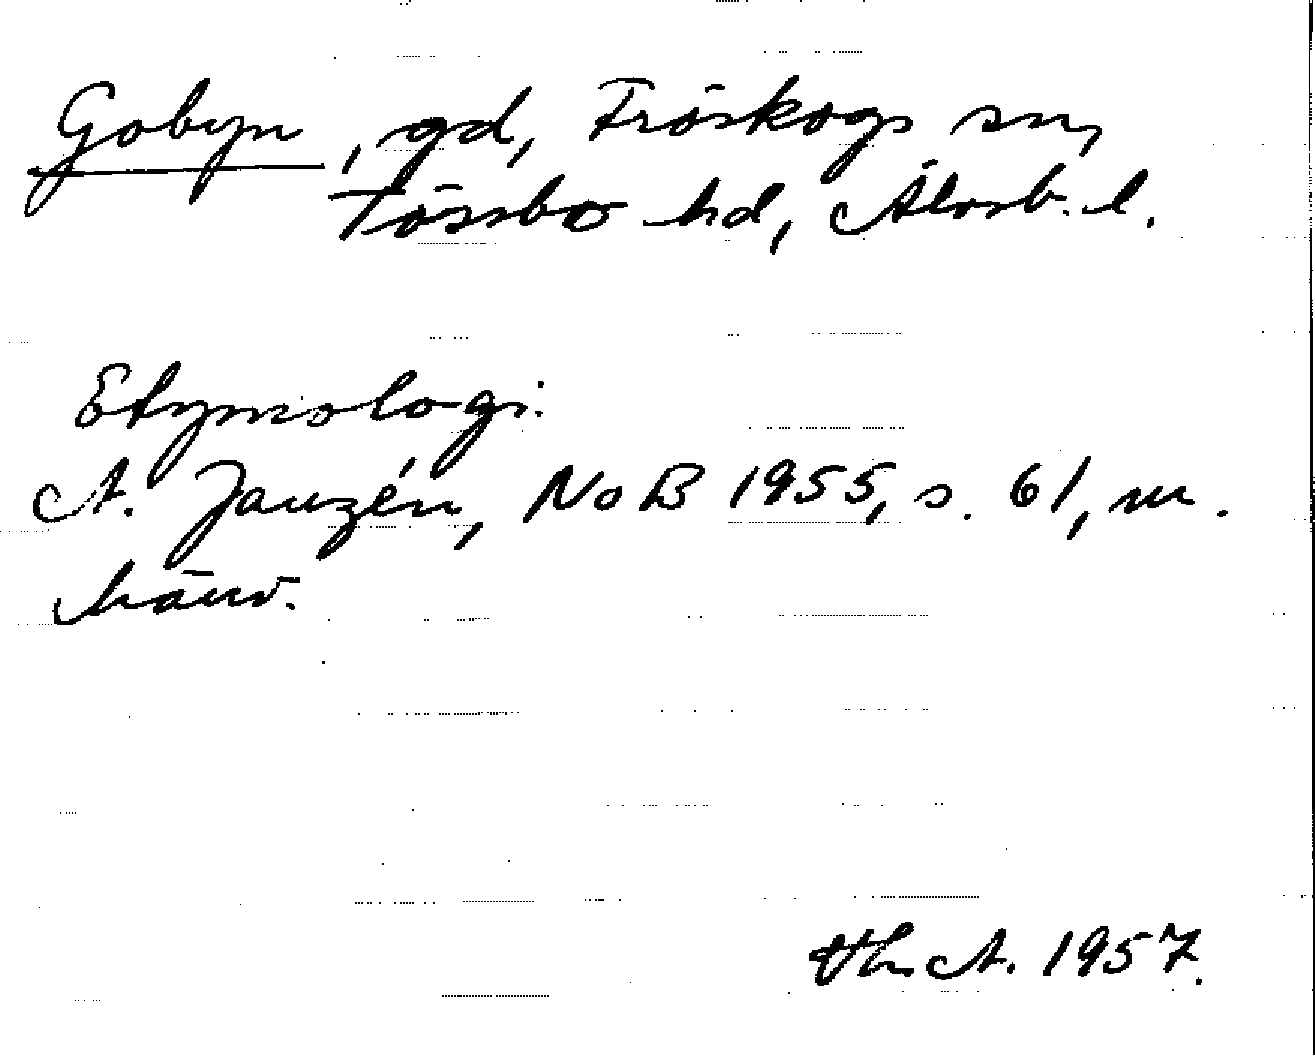 Gobyn, gd, Fröskogs sn,
Tössbo hd, Älvsb. l.
Etymologi:
A. Janzén, NoB 1955, s. 61, m.
hänv.
Th. A. 1957.